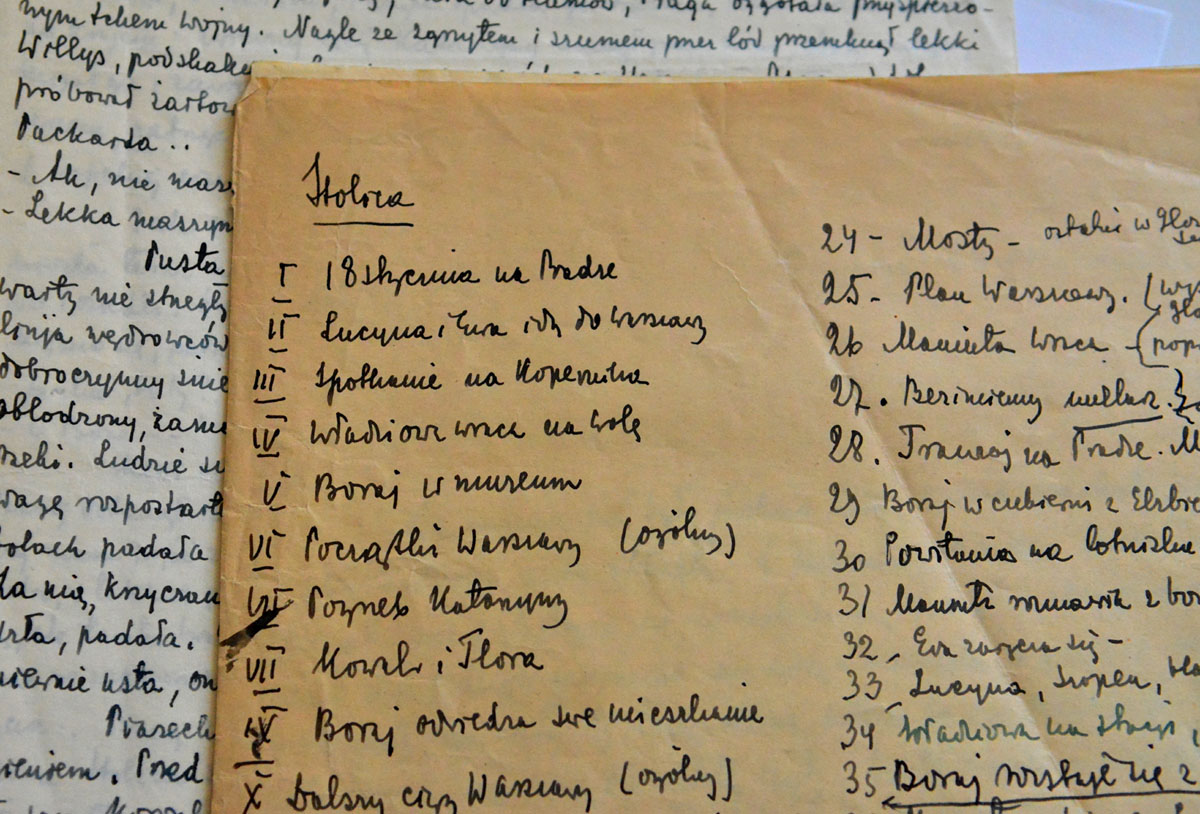 wym tchem wojny. Nagle ze zgrzytem i szumem przez lód przemknął lekki
Willys, podskaku
próbował żartow
Packarda..
- Ah, nie masz
- Lekka maszyn
Pusta
warty nie strzegły
linja wędrowców
dobroczynny śnie
oblodzony, zama
rzeki. Ludzie są
wagę rozpostart
padała
za nią, krzycząc
arła, padała.
usta, on
Piasech
Przed
Stolica
I 18 stycznia na Pradze
II Lucyna i Ewa idą do Warszawy
III Spotkanie na Kopernika
IV Władziowa wraca na Wolę
V Boraj w muzeum
VI Początki Warszawy (ogólny)
VII Pogrzeb Katarzyny
VIII Kowal i Flora
IX Boraj odwiedza swe mieszkanie
X Dalszy ciąg Warszawy (ogólny)
24 - Mosty - ostatni w
25 - Plan Warszawy. (
26 Maniuta wraca - {
27. Bierzmiemy
28. Franciszek na Pradze. M
29 Boraj w cukierni z Elżbie
30 Powitania na lotnisku
31 rozmawia z
32 Ewa zaręcza się -
33 Lucyna, Szopen,
34 Władziowa na stacji,
35 Boraj rozstaje się z